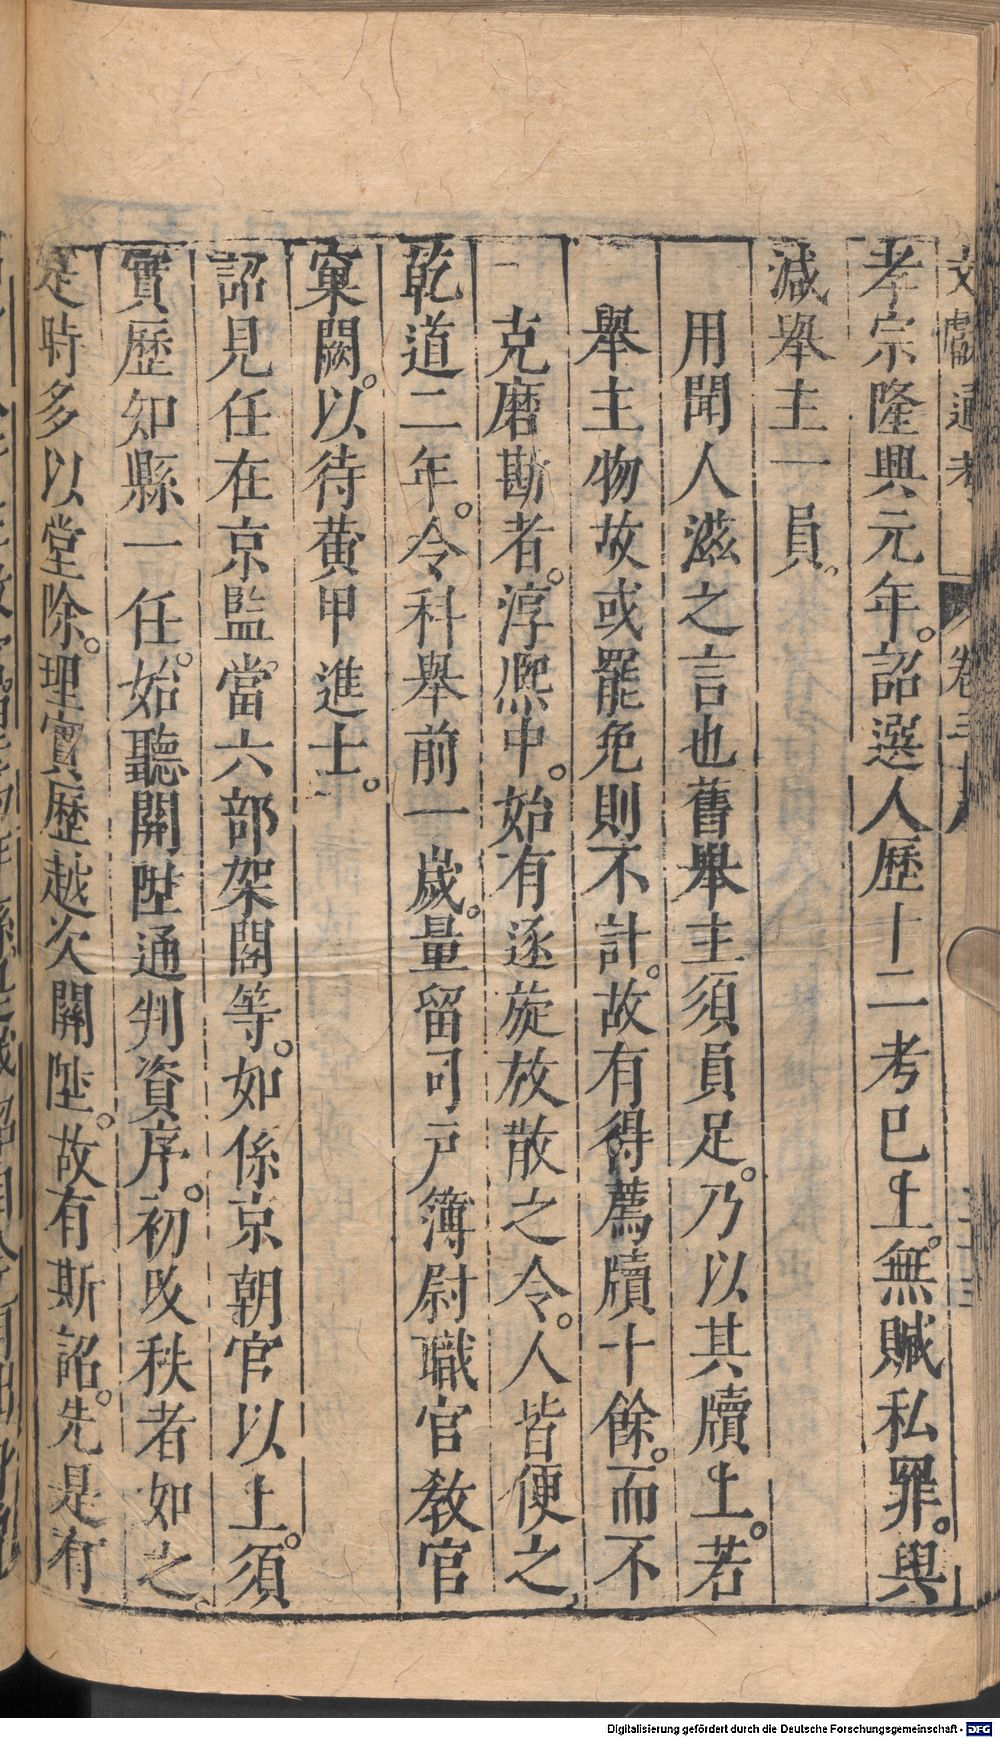 文獻通考 卷三十八
孝宗隆興元年。詔選人歷十二考已上。無贓私罪。與
減舉主一員。
用聞人滋之言也舊舉主須員足。乃以其牘上。若
舉主物故或罷免則不計。故有得薦牘十餘。而不
克磨勘者。淳熙中。始有逐旋放散之令。人皆便之。
乾道二年。令科舉前一歲。量留司戶簿尉職官教官
窠闕。以待黃甲進士。
詔見任在京監當。六部架閣等。如係京朝官以上。須
實歷知縣一任。始聽關陞通判資序。初改秩者如之。
是時多以堂除。理實歷越次關陞。故有斯詔。先是有
Digitalisierung gefördert durch die Deutsche Forschungsgemeinschaft - DFG